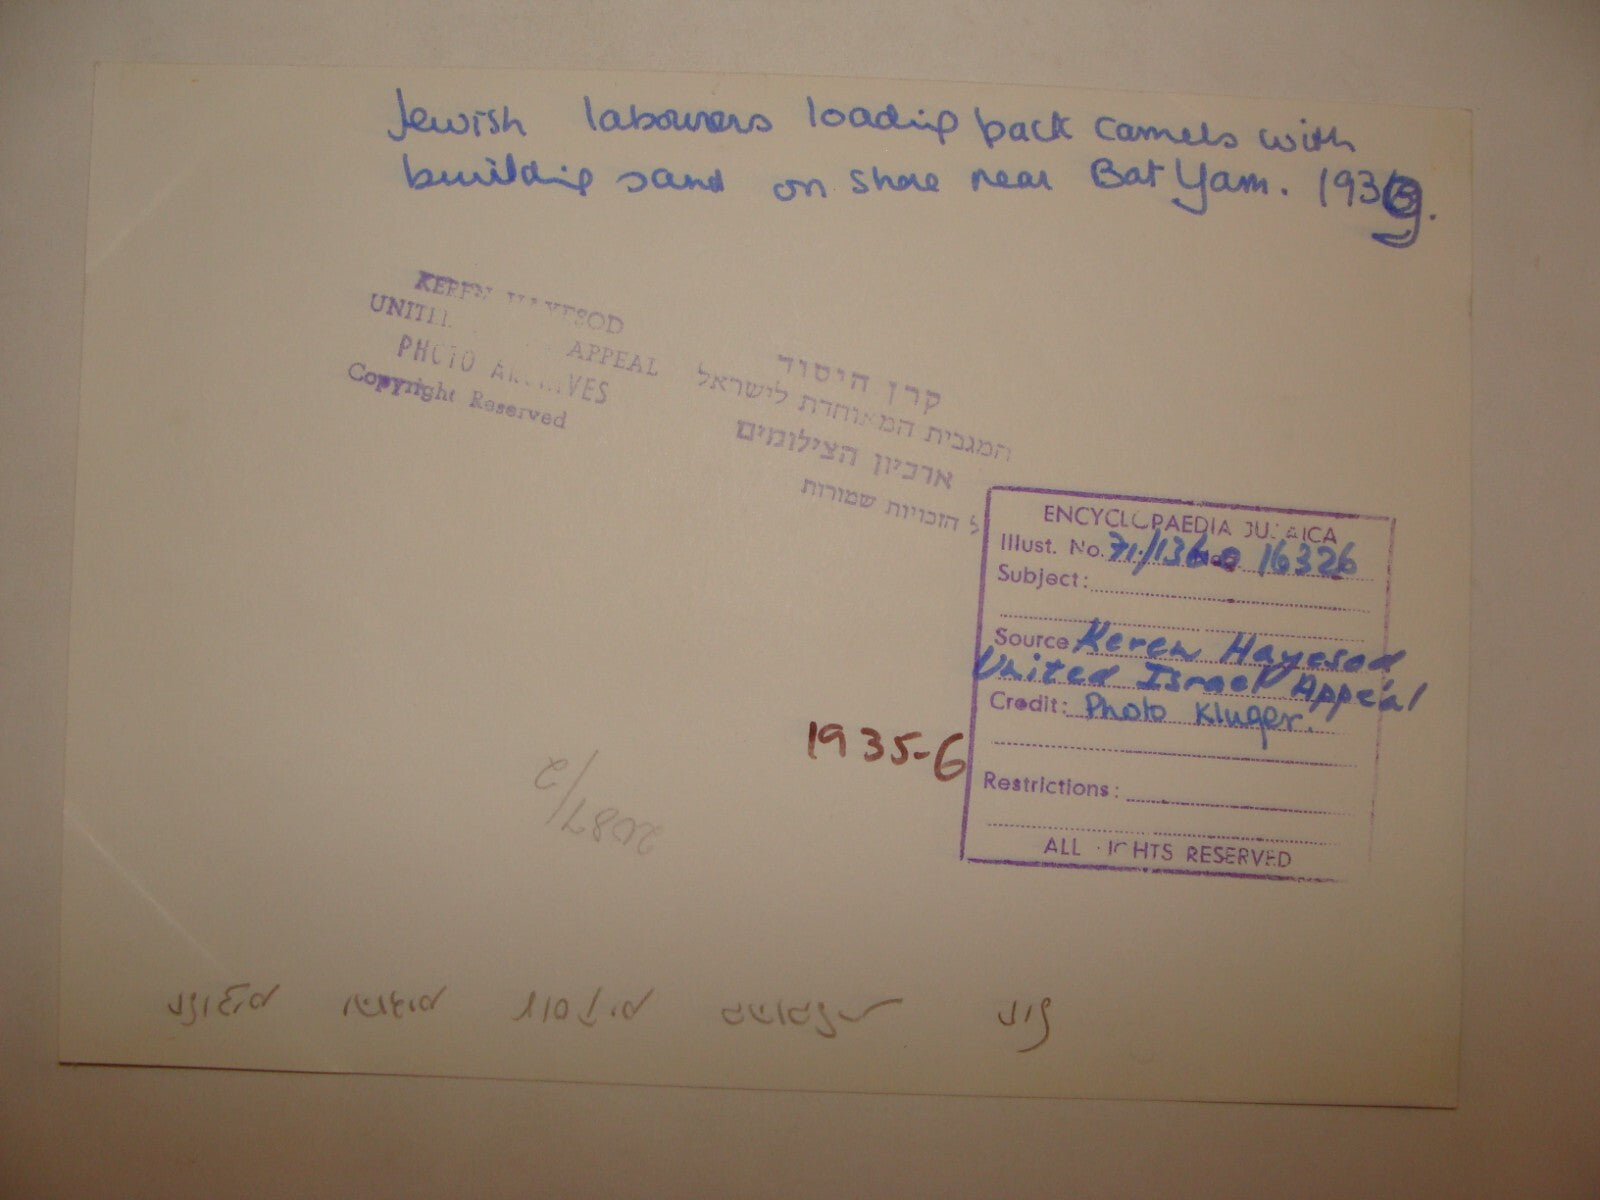 Jewish labourers loading pack camels with
building sand on shore near Bat Yam. 1939.
KEREN HAYESOD
UNITED APPEAL
PHOTO ARCHIVES
Copyright Reserved
קרן היסוד
המגבית המאוחדת לישראל
ארכיון הצילומים
כל הזכויות שמורות
ENCYCLOPAEDIA JUDAICA
Illust. No. 71/136 16326
Subject:
Source Keren Hayesod
United Israel Appeal
Credit: Photo Kluger.
Restrictions:
ALL RIGHTS RESERVED
1935-6
2087/2